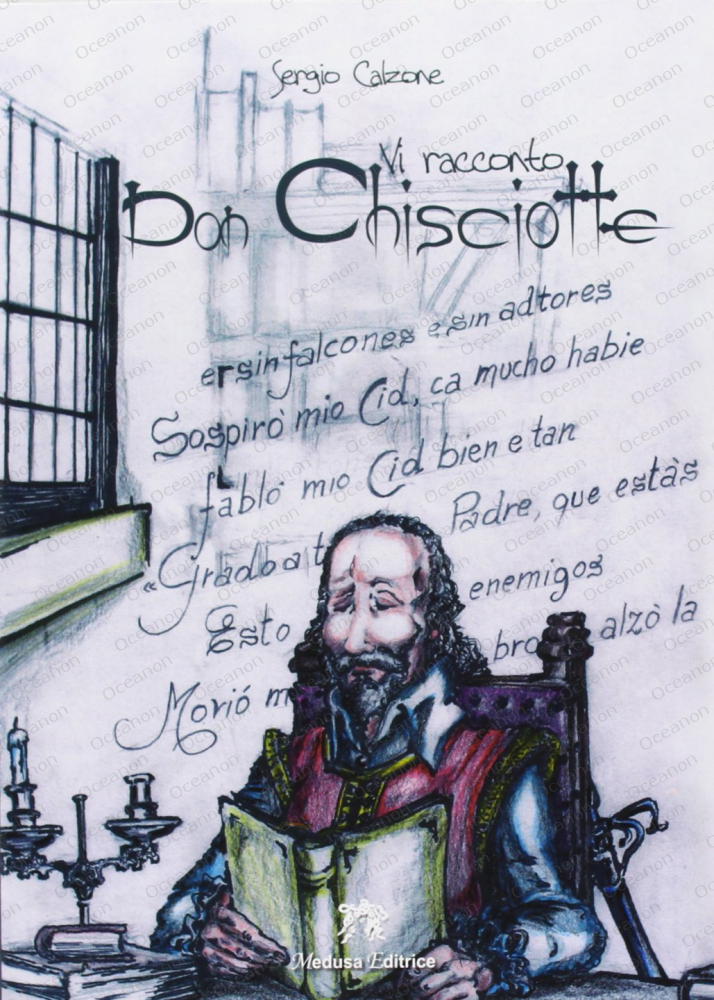 Sergio Calzone
Vi racconto
Don Chisciotte
er sin falcones e sin adtores
Sospirò mio Cid, ca mucho habie
fabló mio Cid bien e tan
«Gradba t Padre, que estàs
Esto enemigos
bro alzò la
Morió m
Medusa Editrice
Oceanon